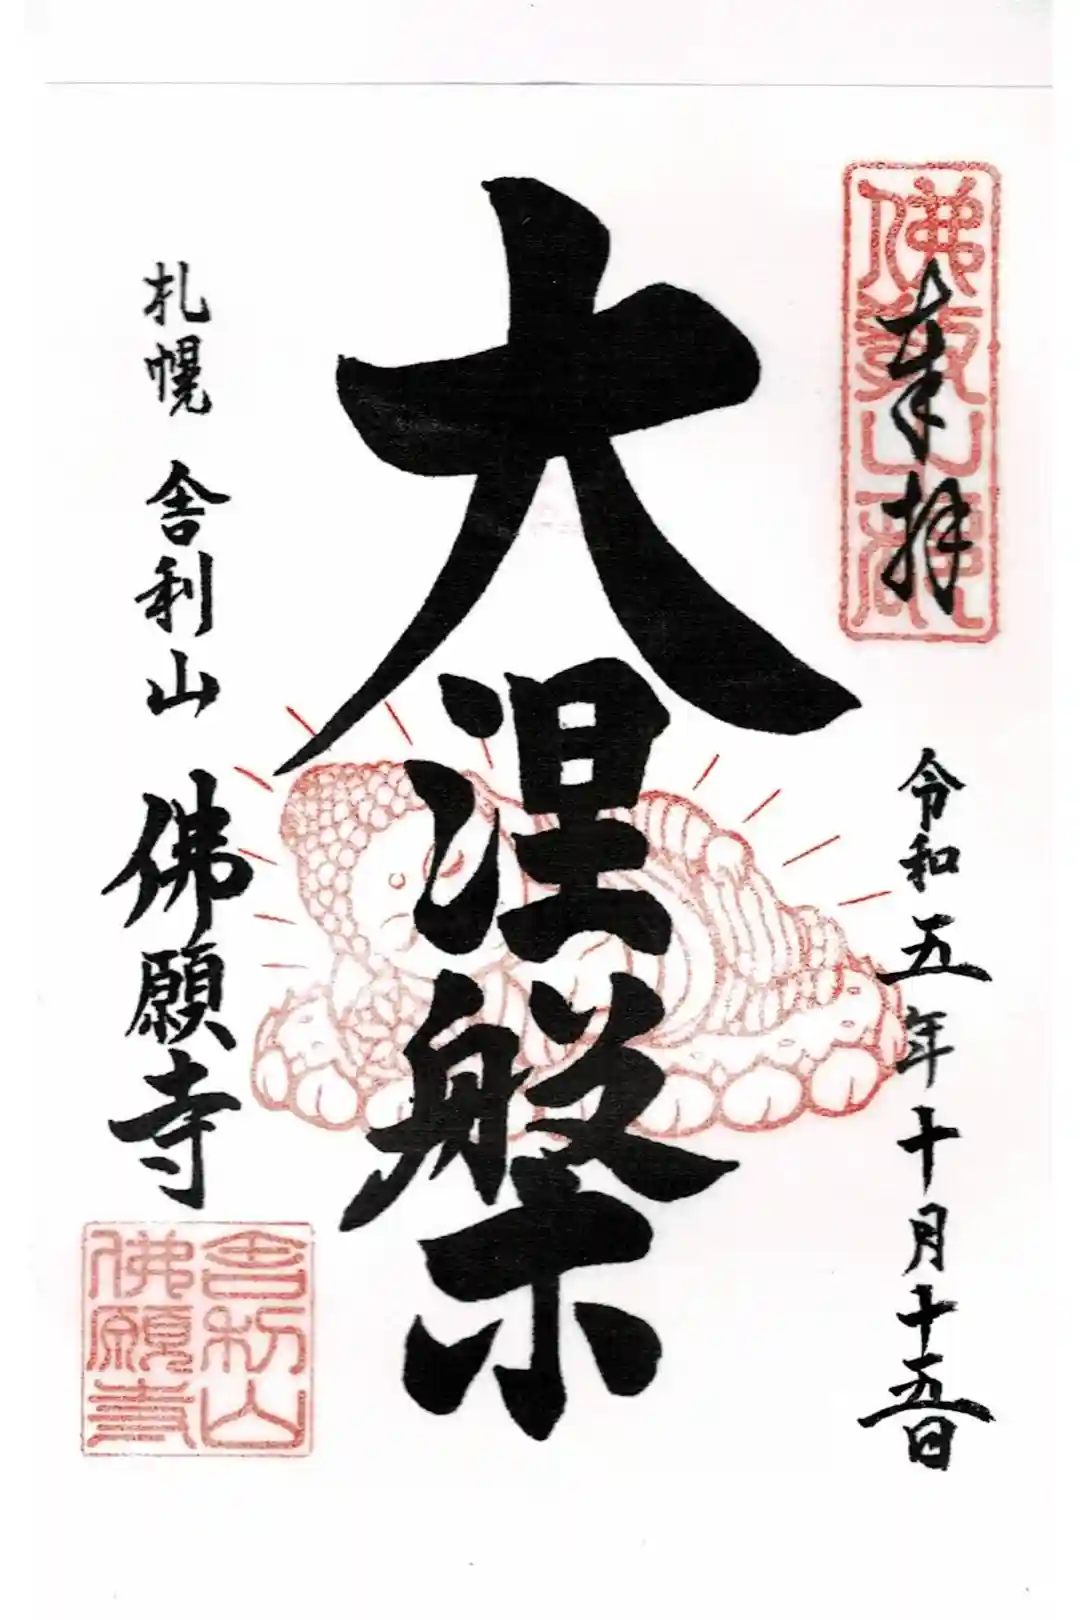 奉拝
令和五年十月十五日
大涅槃
札幌 舎利山 佛願寺
舎利山
佛願寺